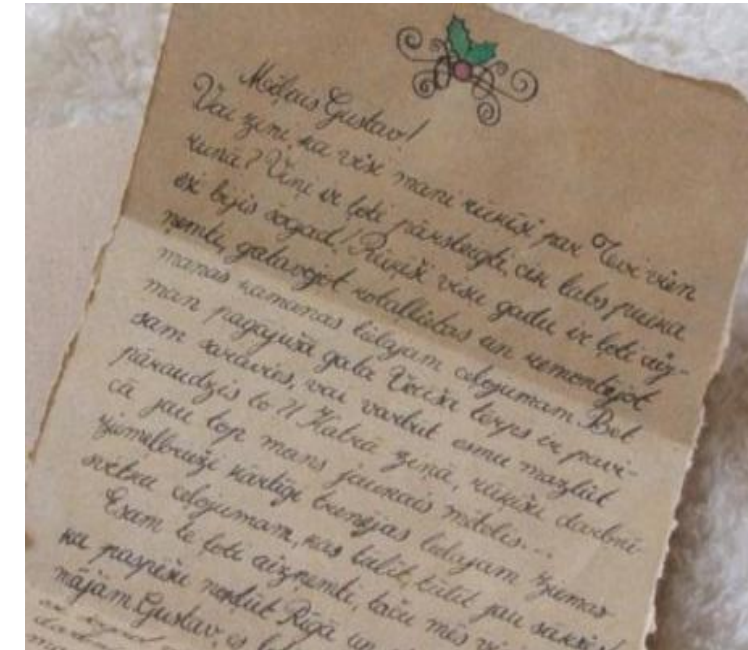 Mīļais Gustav!
Vai zini, ka visi mani rūķīši par Tevi vien
runā? Viņi ir ļoti pārsteigti, cik labs puika
esi bijis šogad! Rūķīši visu gadu ir ļoti aiz-
ņemti, gatavojot rotaļlietas un remontējot
manas kamanas lielajam ceļojumam. Bet
man pagājušā gada Veciša terps ir pavi-
sam sarāvies, vai varbūt esmu mazliet
pāraudzis to?! Katrā ziņā, rūķīšu darbnī-
cā jau top mans jaunais mētelis...
Ziemeļbrieži kārtīgi trenējas lielajam Ziemas-
svētku ceļojumam, kas tūlīt, tūlīt jau sāksies!
Esam te ļoti aizņemti, taču mēs
ka paspēšu nonākt Rīgā un
mājām Gustav, is